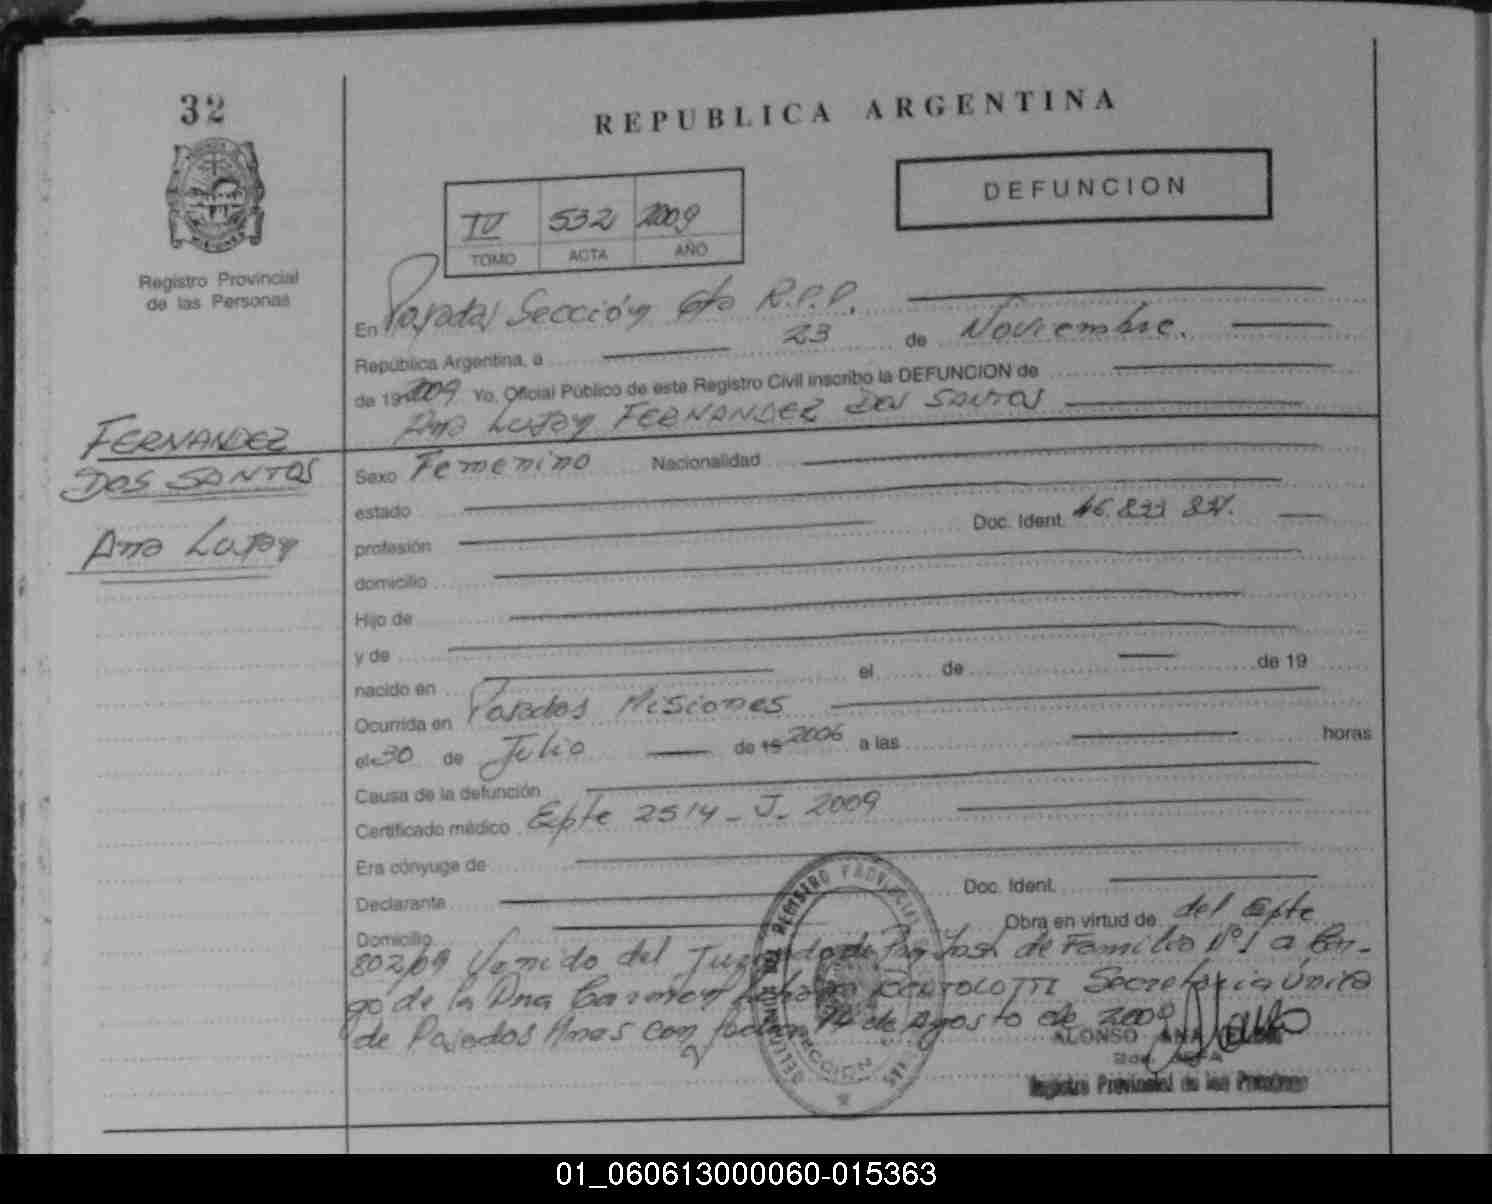 32
REPUBLICA ARGENTINA
DEFUNCION
IV 532 2009
TOMO ACTA AÑO
Registro Provincial
de las Personas
En Posadas Sección 6ta R.P.P.
República Argentina, a 23 de Noviembre.
de 19 2009 Yo, Oficial Público de este Registro Civil inscribo la DEFUNCION de
Ana Lujan FERNANDEZ DOS SANTOS
FERNANDEZ
DOS SANTOS
Ana Lujan
Sexo Femenino Nacionalidad
estado
profesión Doc. Ident. 46.833
domicilio
Hijo de
y de
nacido en el de de 19
Ocurrida en Posadas Misiones
el 30 de Julio de 19 2006 a las horas
Causa de la defunción
Certificado médico Epte 2514-J-2009
Era cónyuge de
Declarante Doc. Ident.
Domicilio Obra en virtud de del Epte
802/09 Venido del Juzgado de de Familia Nº1 a Car-
go de la Dra Carmen Secretaria Única
de Posadas Mnes con fecha 14 de Agosto de 2009
REGISTRO PROVINCIAL
ALONSO ANA
Registro Provincial de las Personas
01_060613000060-015363